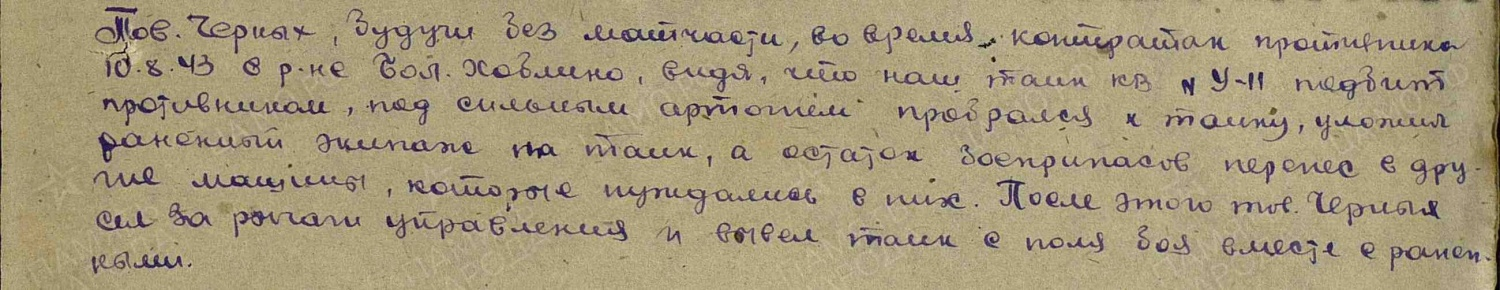 Тов. Черных, будучи без матчасти, во время контратак противника
10.8.43 в р-не Бол. Ховлино, видя, что наш танк КВ N У-11 подбит
противником, под сильным артогнём пробрался к танку, уложил
раненный экипаж на танк, а остаток боеприпасов перенес в дру-
гие машины, которые нуждались в них. После этого тов. Черных
сел за рычаги управления и вывел танк с поля боя вместе с ранен-
ными.